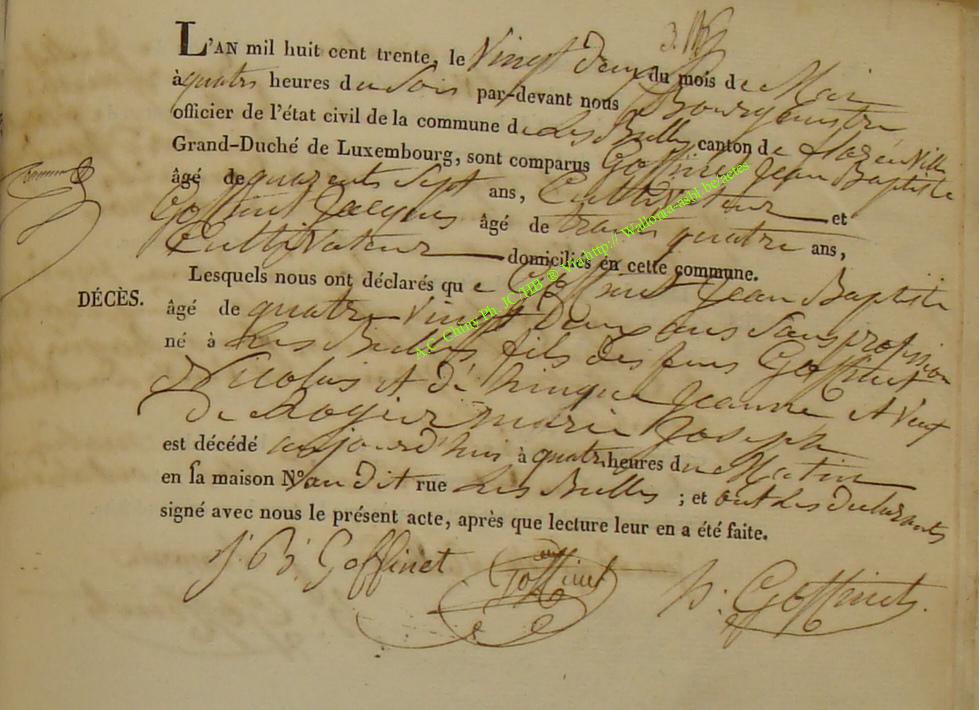 L'AN mil huit cent trente, le Vingt deux du mois de Mai
à quatre heures du Soir par-devant nous Bourgmestre
officier de l'état civil de la commune de Les Bulles canton de
Grand-Duché de Luxembourg, sont comparus Goffinet Jean Baptiste
âgé de quarente Sept ans, Cultivateur et
Goffinet Jacques âgé de trente quatre ans,
Cultivateur domiciliés en cette commune.
Lesquels nous ont déclarés que Goffinet Jean Baptiste
DÉCÈS.
âgé de quatre Vingt Deux ans Sans profession
né à Les Bulles fils des feus Goffinet
Nicolas et d' Jeanne et Veuf
de Rogier marie Joseph
est décédé aujourd'hui à quatre heures du Matin
en sa maison N° au Dit rue Les Bulles ; et ont Les Declarants
signé avec nous le présent acte, après que lecture leur en a été faite.
J. B. Goffinet Goffinet h. Goffinet.
A.C. Chiny Ph JC HB ® Via http://.Wallonia-asbl.be/actes